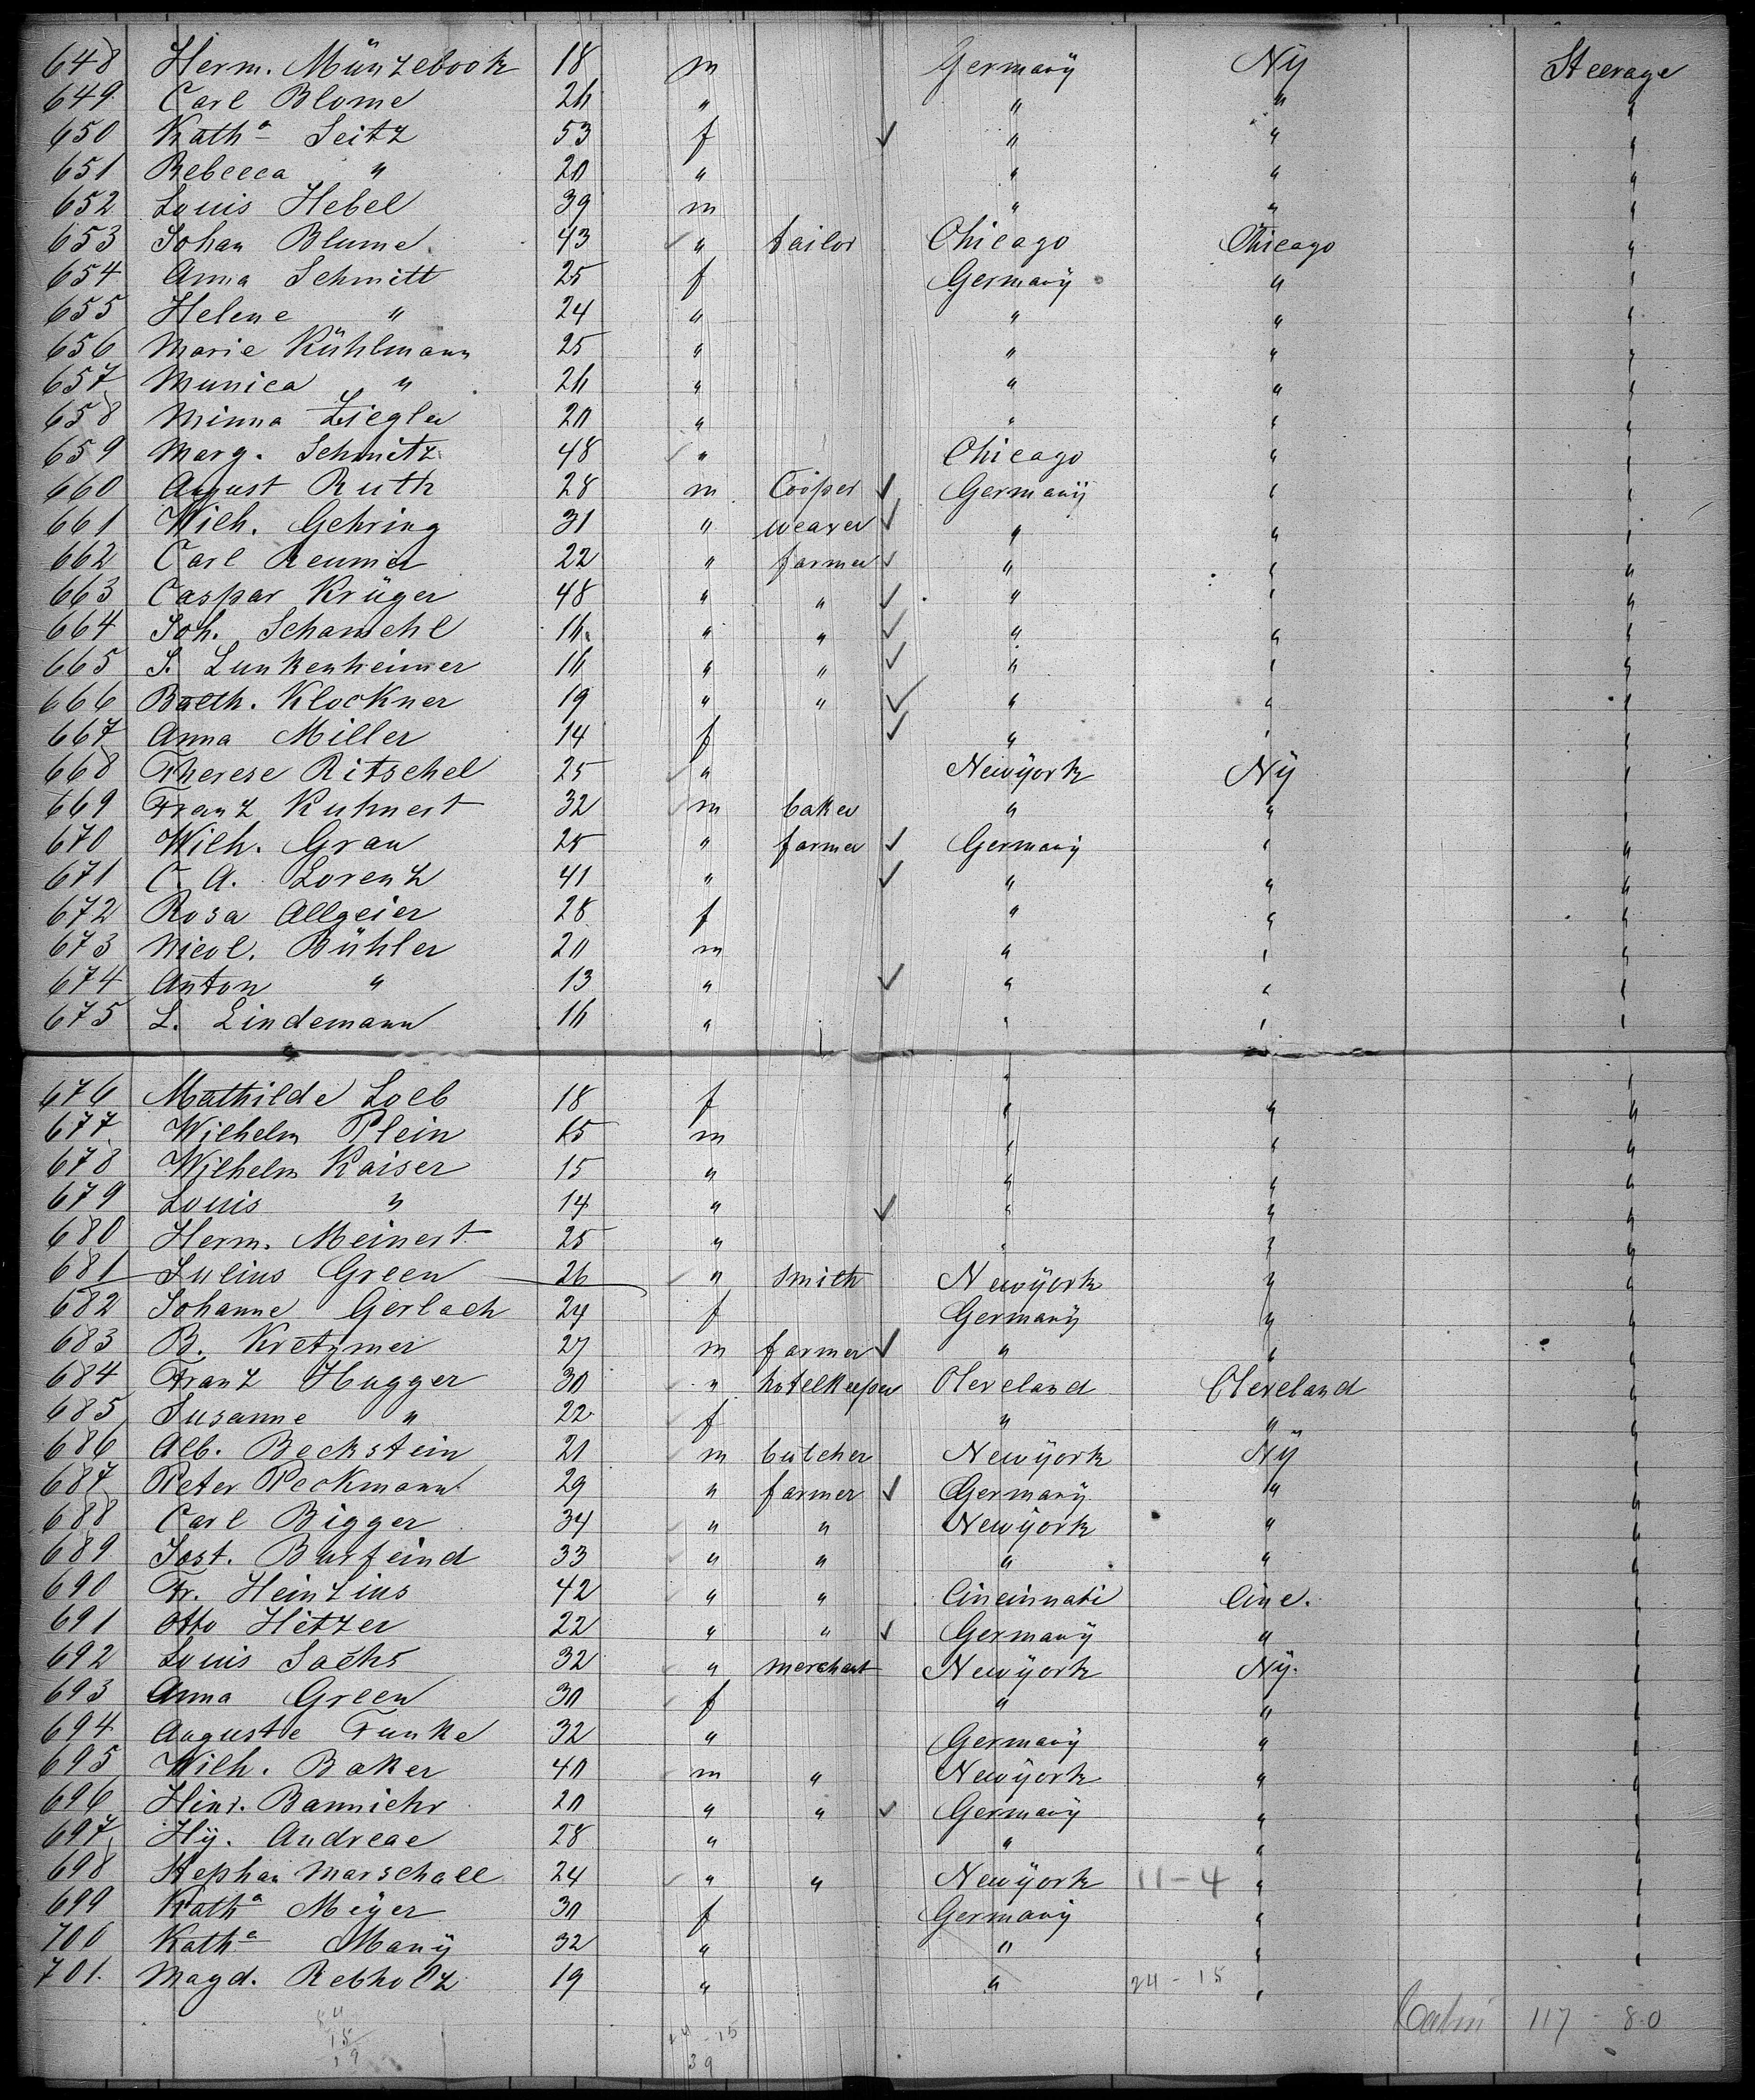 648 Herm. Münzebock 18 m Germany Ny Steerage
649 Carl Blome 26 " " " "
650 Kath.a Seitz 53 f ✓ " " "
651 Rebecca " 20 " " " "
652 Louis Hebel 39 m " " "
653 Johan Blume 43 " tailor Chicago Chicago "
654 Anna Schmitt 25 f Germany " "
655 Helene " 24 " " " "
656 Marie Kühlmann 25 " " " "
657 Munica " 26 " " " "
658 Minna Ziegler 20 " " " "
659 Marg. Schmitz 48 " Chicago " "
660 August Ruth 28 m Cooper ✓ Germany " "
661 Wilh. Gehring 31 " weaver ✓ " " "
662 Carl 22 " farmer ✓ " " "
663 Caspar Krüger 48 " " ✓ " " "
664 Joh. 16 " " ✓ " " "
665 S. Lunkenheimer 16 " " ✓ " " "
666 Balth. Klockner 19 " " ✓ " " "
667 Anna Miller 14 f ✓ " " "
668 Therese Ritschel 25 " Newyork Ny "
669 Franz Kuhnert 32 m baker " " "
670 Wilh. Grau 25 " farmer ✓ Germany " "
671 C. A. Lorenz 41 " ✓ " " "
672 Rosa Allgeier 28 f " " "
673 Nicol. Bühler 20 m " " "
674 Anton " 13 " ✓ " " "
675 L. Lindemann 16 " " " "
676 Mathilde Loeb 18 f " " "
677 Wilhelm Plein 15 m " " "
678 Wilhelm Kaiser 15 " " " "
679 Louis " 14 " ✓ " " "
680 Herm. Meinert 25 " " " "
681 Julius Green 26 " smith Newyork " "
682 Johanne Gerlach 24 f Germany " "
683 B. Kretzmer 27 m farmer ✓ " " "
684 Franz Hugger 30 " hotelkeeper Cleveland Cleveland "
685 Susanne " 22 f " " "
686 Alb. Beckstein 21 m butcher Newyork Ny "
687 Peter Peckmann 29 " farmer ✓ Germany " "
688 Carl Bigger 34 " " Newyork " "
689 Jost. Burfeind 33 " " " " "
690 Fr. Heinzius 42 " " Cincinnati Cinc. "
691 Otto Hitzer 22 " " ✓ Germany " "
692 Louis Sachs 32 " merchant Newyork Ny. "
693 Anna Green 30 f " " "
694 Auguste Funke 32 " Germany " "
695 Wilh. Baker 40 m " Newyork " "
696 Hinr. Bannichr 20 " " ✓ Germany " "
697 Hy. Andreae 28 " " " "
698 Stephan Marschall 24 " " Newyork 11-4 " "
699 Kath.a Meyer 30 f Germany " "
700 Kath.a Many 32 " " " "
701. Magd. Rebholz 19 " " 24-15 "
117 - 80
15 24-15
39